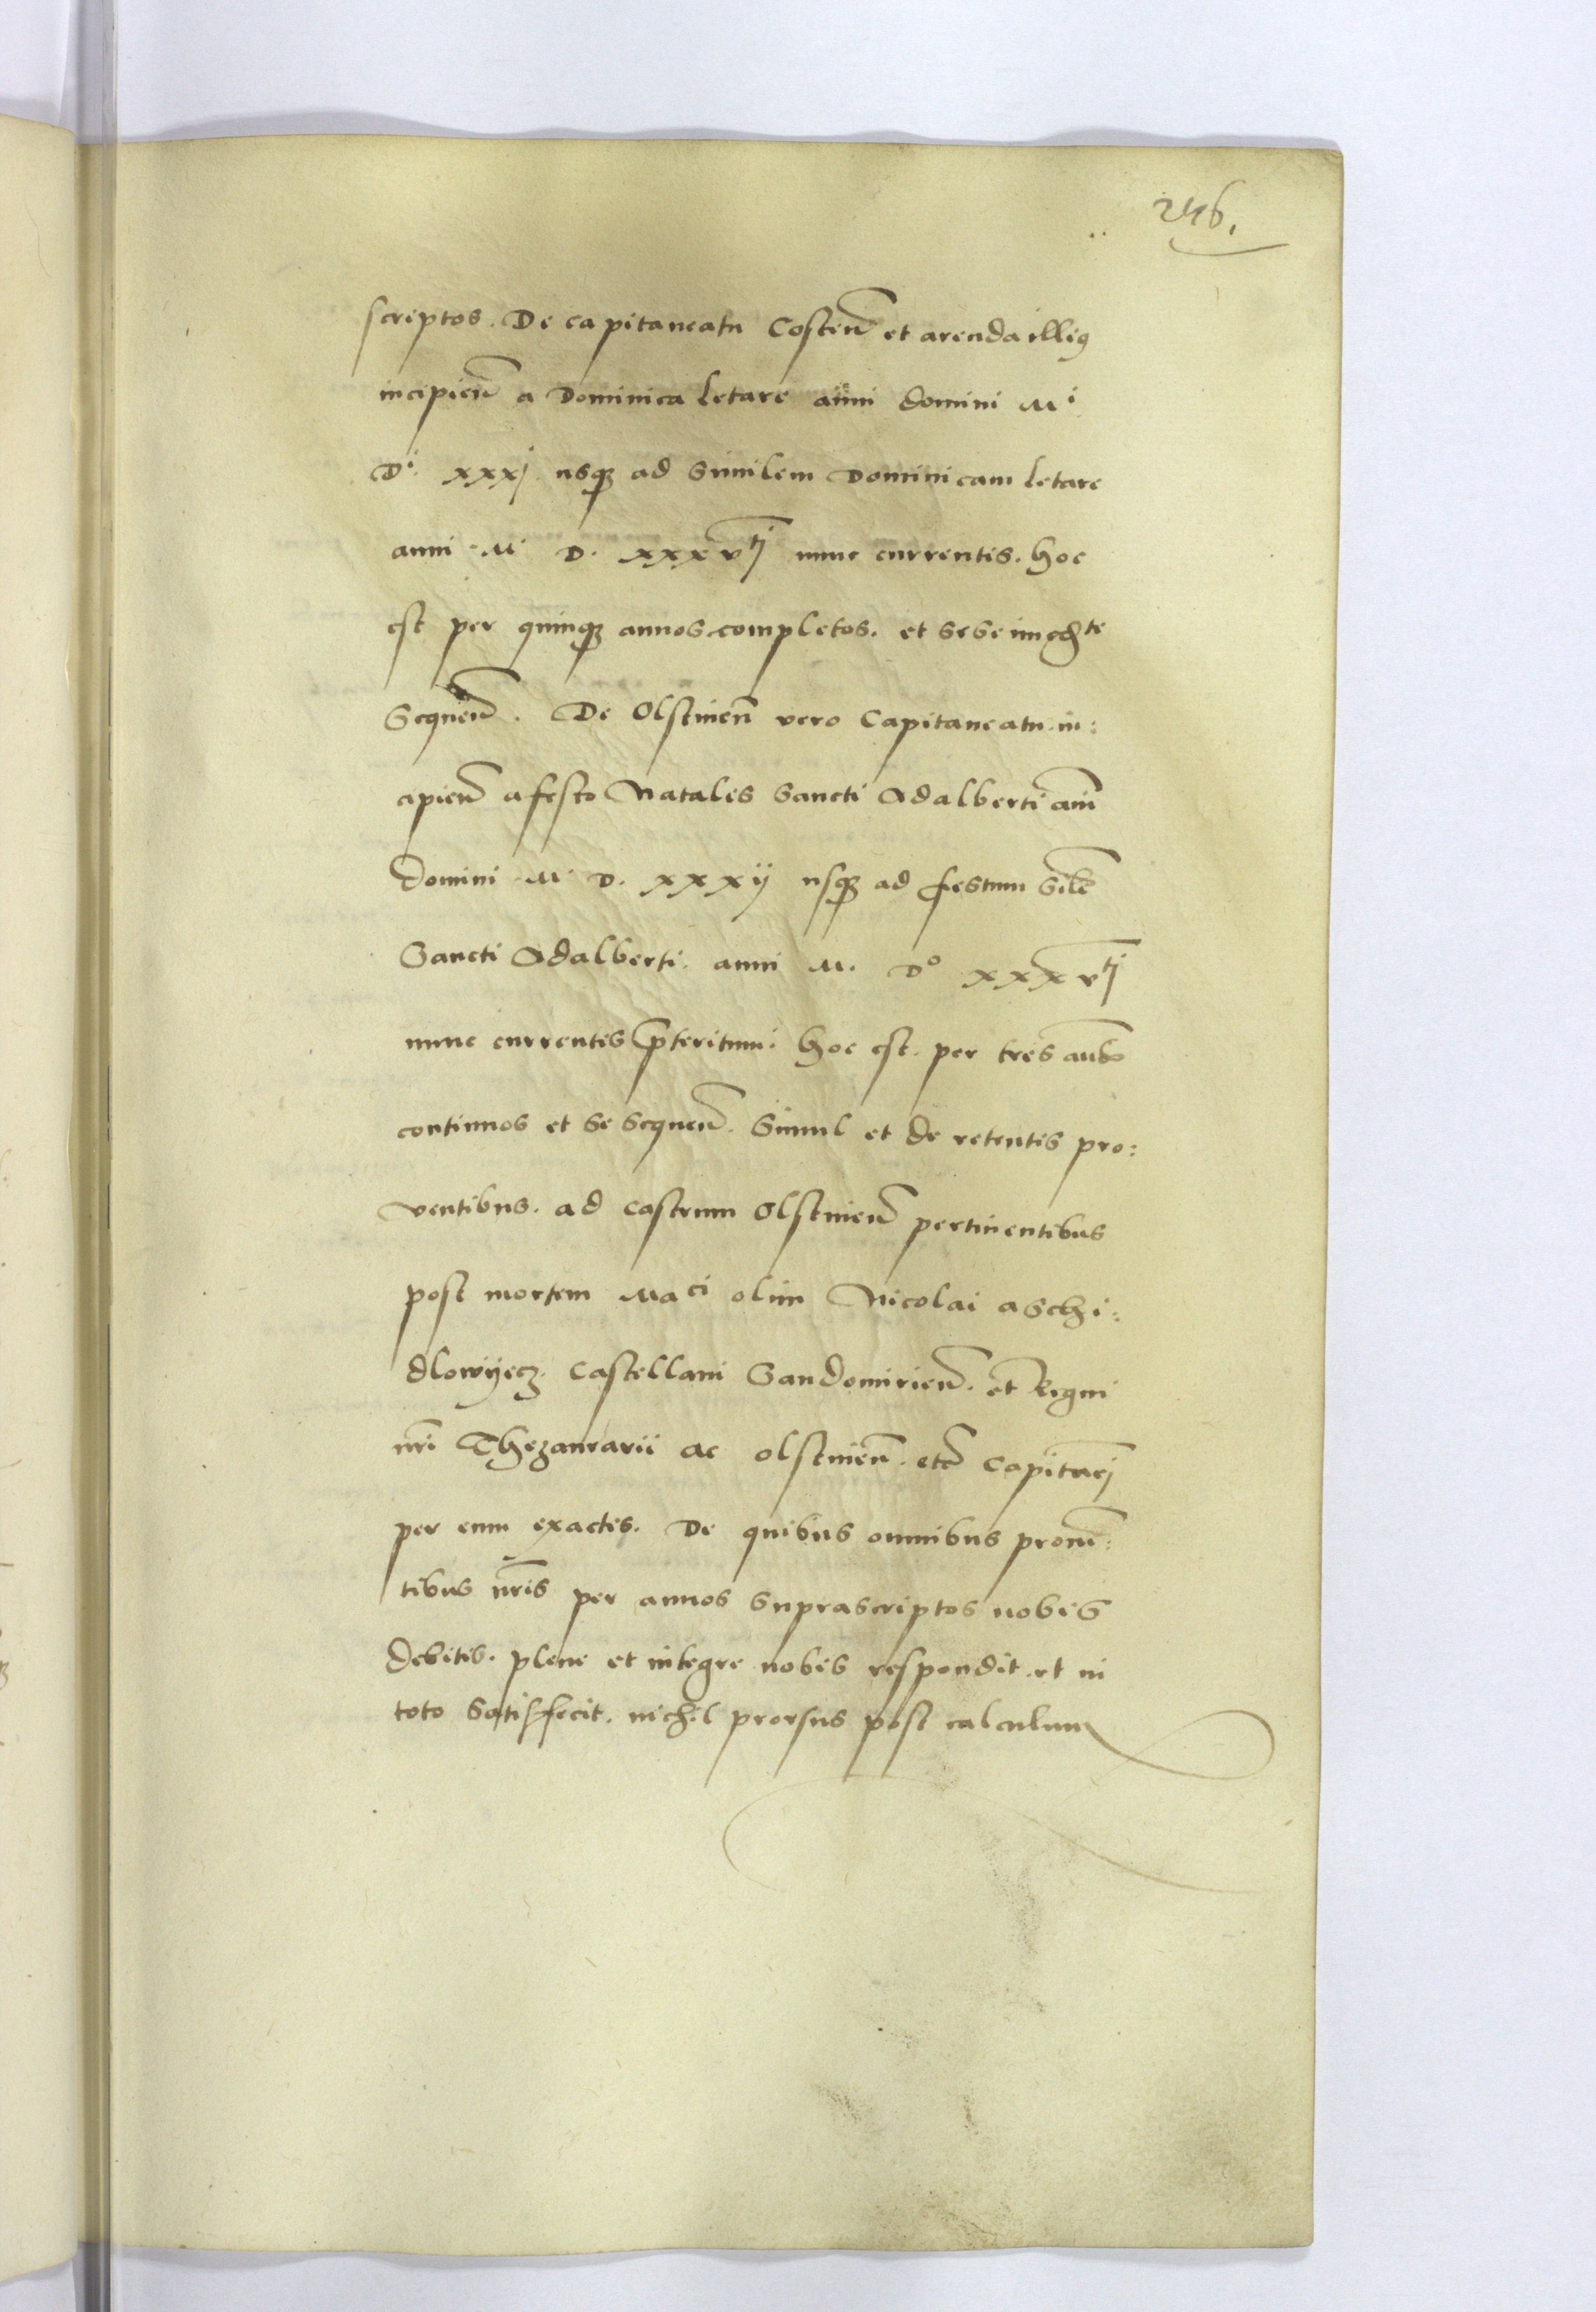 246.
scriptos. De capitaneatu Costeñ et arenda illiꝯ
incipieñ a Dominica letare anni domini Mⁱ
Dⁱ. xxxj. usqꝫ ad Similem Dominicam letare
anni M. D. xxxvj nunc currentis. hoc
est per quinqꝫ annos completos. et sese immedᵗᵉ
Sequeñ. De Olstineñ vero Capitaneatu in:
cipieñ a festo Natalis Sancti Adalberti anñ
domini M. D. xxxij usqꝫ ad festum Silẽ
Sancti Adalberti. anni M. D° xxxvj
nunc currentis p̃teritum. hoc est. per tres annos
continuos et se sequeñ. Simul et de retentis pro:
ventibus. ad castrum Olstineñ pertinentibus
post mortem Maci olim Nicolai aSchi:
dlowyecz. Castellani Sandomirieñ. et Regni
nr̃i Thezaurarii ac olstineñ. etc̃ Capitanei
per eum exactis. De quibus omnibus proveñ:
tibus nr̃is per annos Suprascriptos nobis
debitis. plene et integre nobis respondit et in
toto Satisfecit. nichil prorsus post calculum